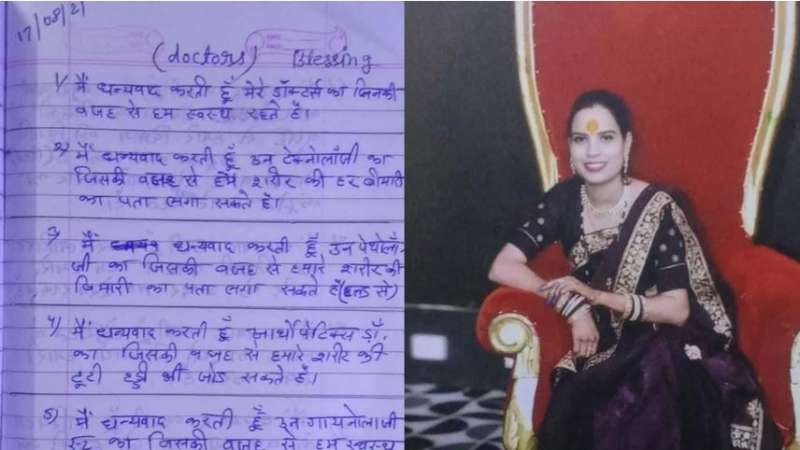 17/08/21
(doctors) Blessing
1) मैं धन्यवाद करती हूँ मेरे डॉक्टर्स का जिनकी
वजह से हम स्वस्थ रहते हैं।
2) मैं धन्यवाद करती हूँ उन टेक्नोलॉजी का
जिसकी वजह से हमे शरीर की हर बीमारी
का पता लगा सकते हैं।
3) मैं धन्यवाद करती हूँ उन पेथोलॉ-
जी का जिसकी वजह से हमारे शरीर की
बिमारी का पता लगा सकते हैं (ब्लड से)
4) मैं धन्यवाद करती हूँ आर्थोपेटिक्स डॉ.
का जिसकी वजह से हमारे शरीर की
टूटी हड्डी भी जोड सकते हैं।
5) मैं धन्यवाद करती हूँ उन गायनोलाजी
स्ट का जिसकी वजह से हम स्वस्थ